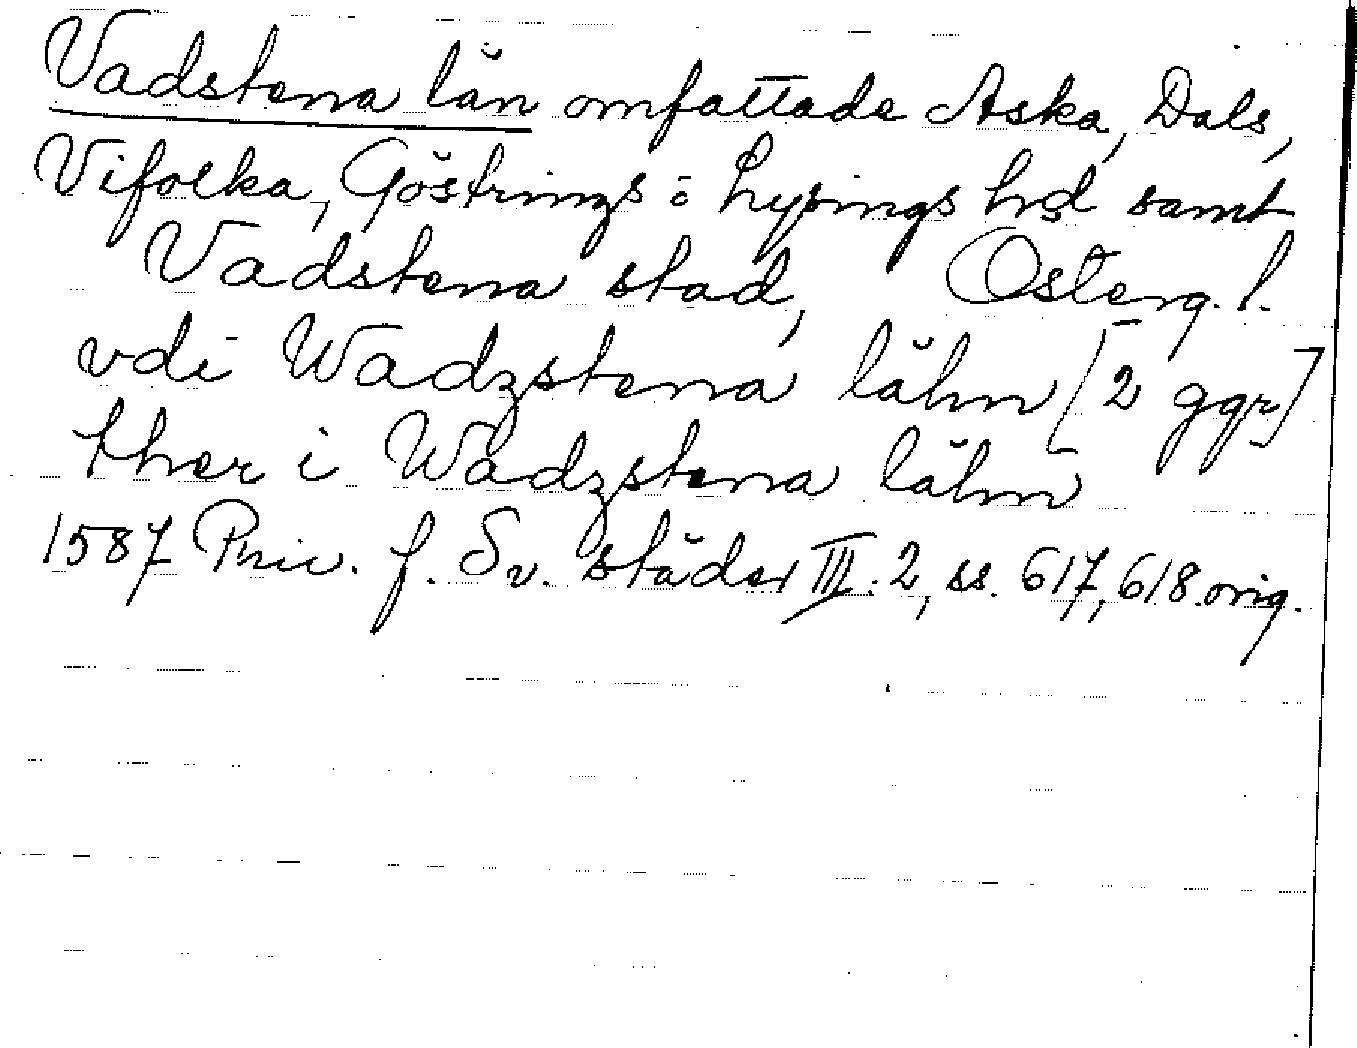 Vadstena län omfattade Aska, Dals,
Vifolka, Göstrings o Lysings hd samt
Vadstena stad, Österg. l.
vdi Wadzstena lähn [2 ggr]
ther i Wadzstena lähn
1587 Priv. f. Sv. städer III:2, ss. 617, 618. orig.